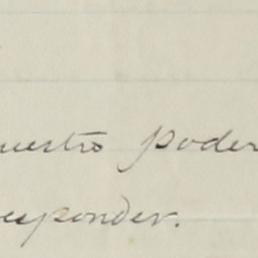 uestro poder
esponder.